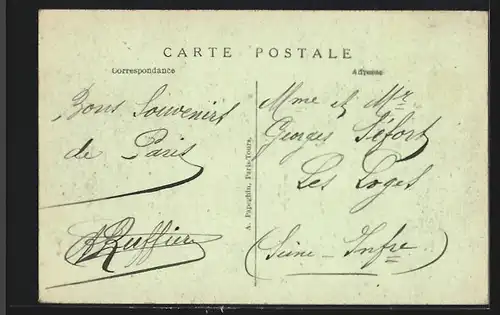 CARTE POSTALE
Correspondance
Adresse
Bons Souvenirs
de Paris
A Ruffier
A. Papeghin, Paris-Tours.
Mme et Mr
Georges Lefort
Les Loges
(Seine-Infre)